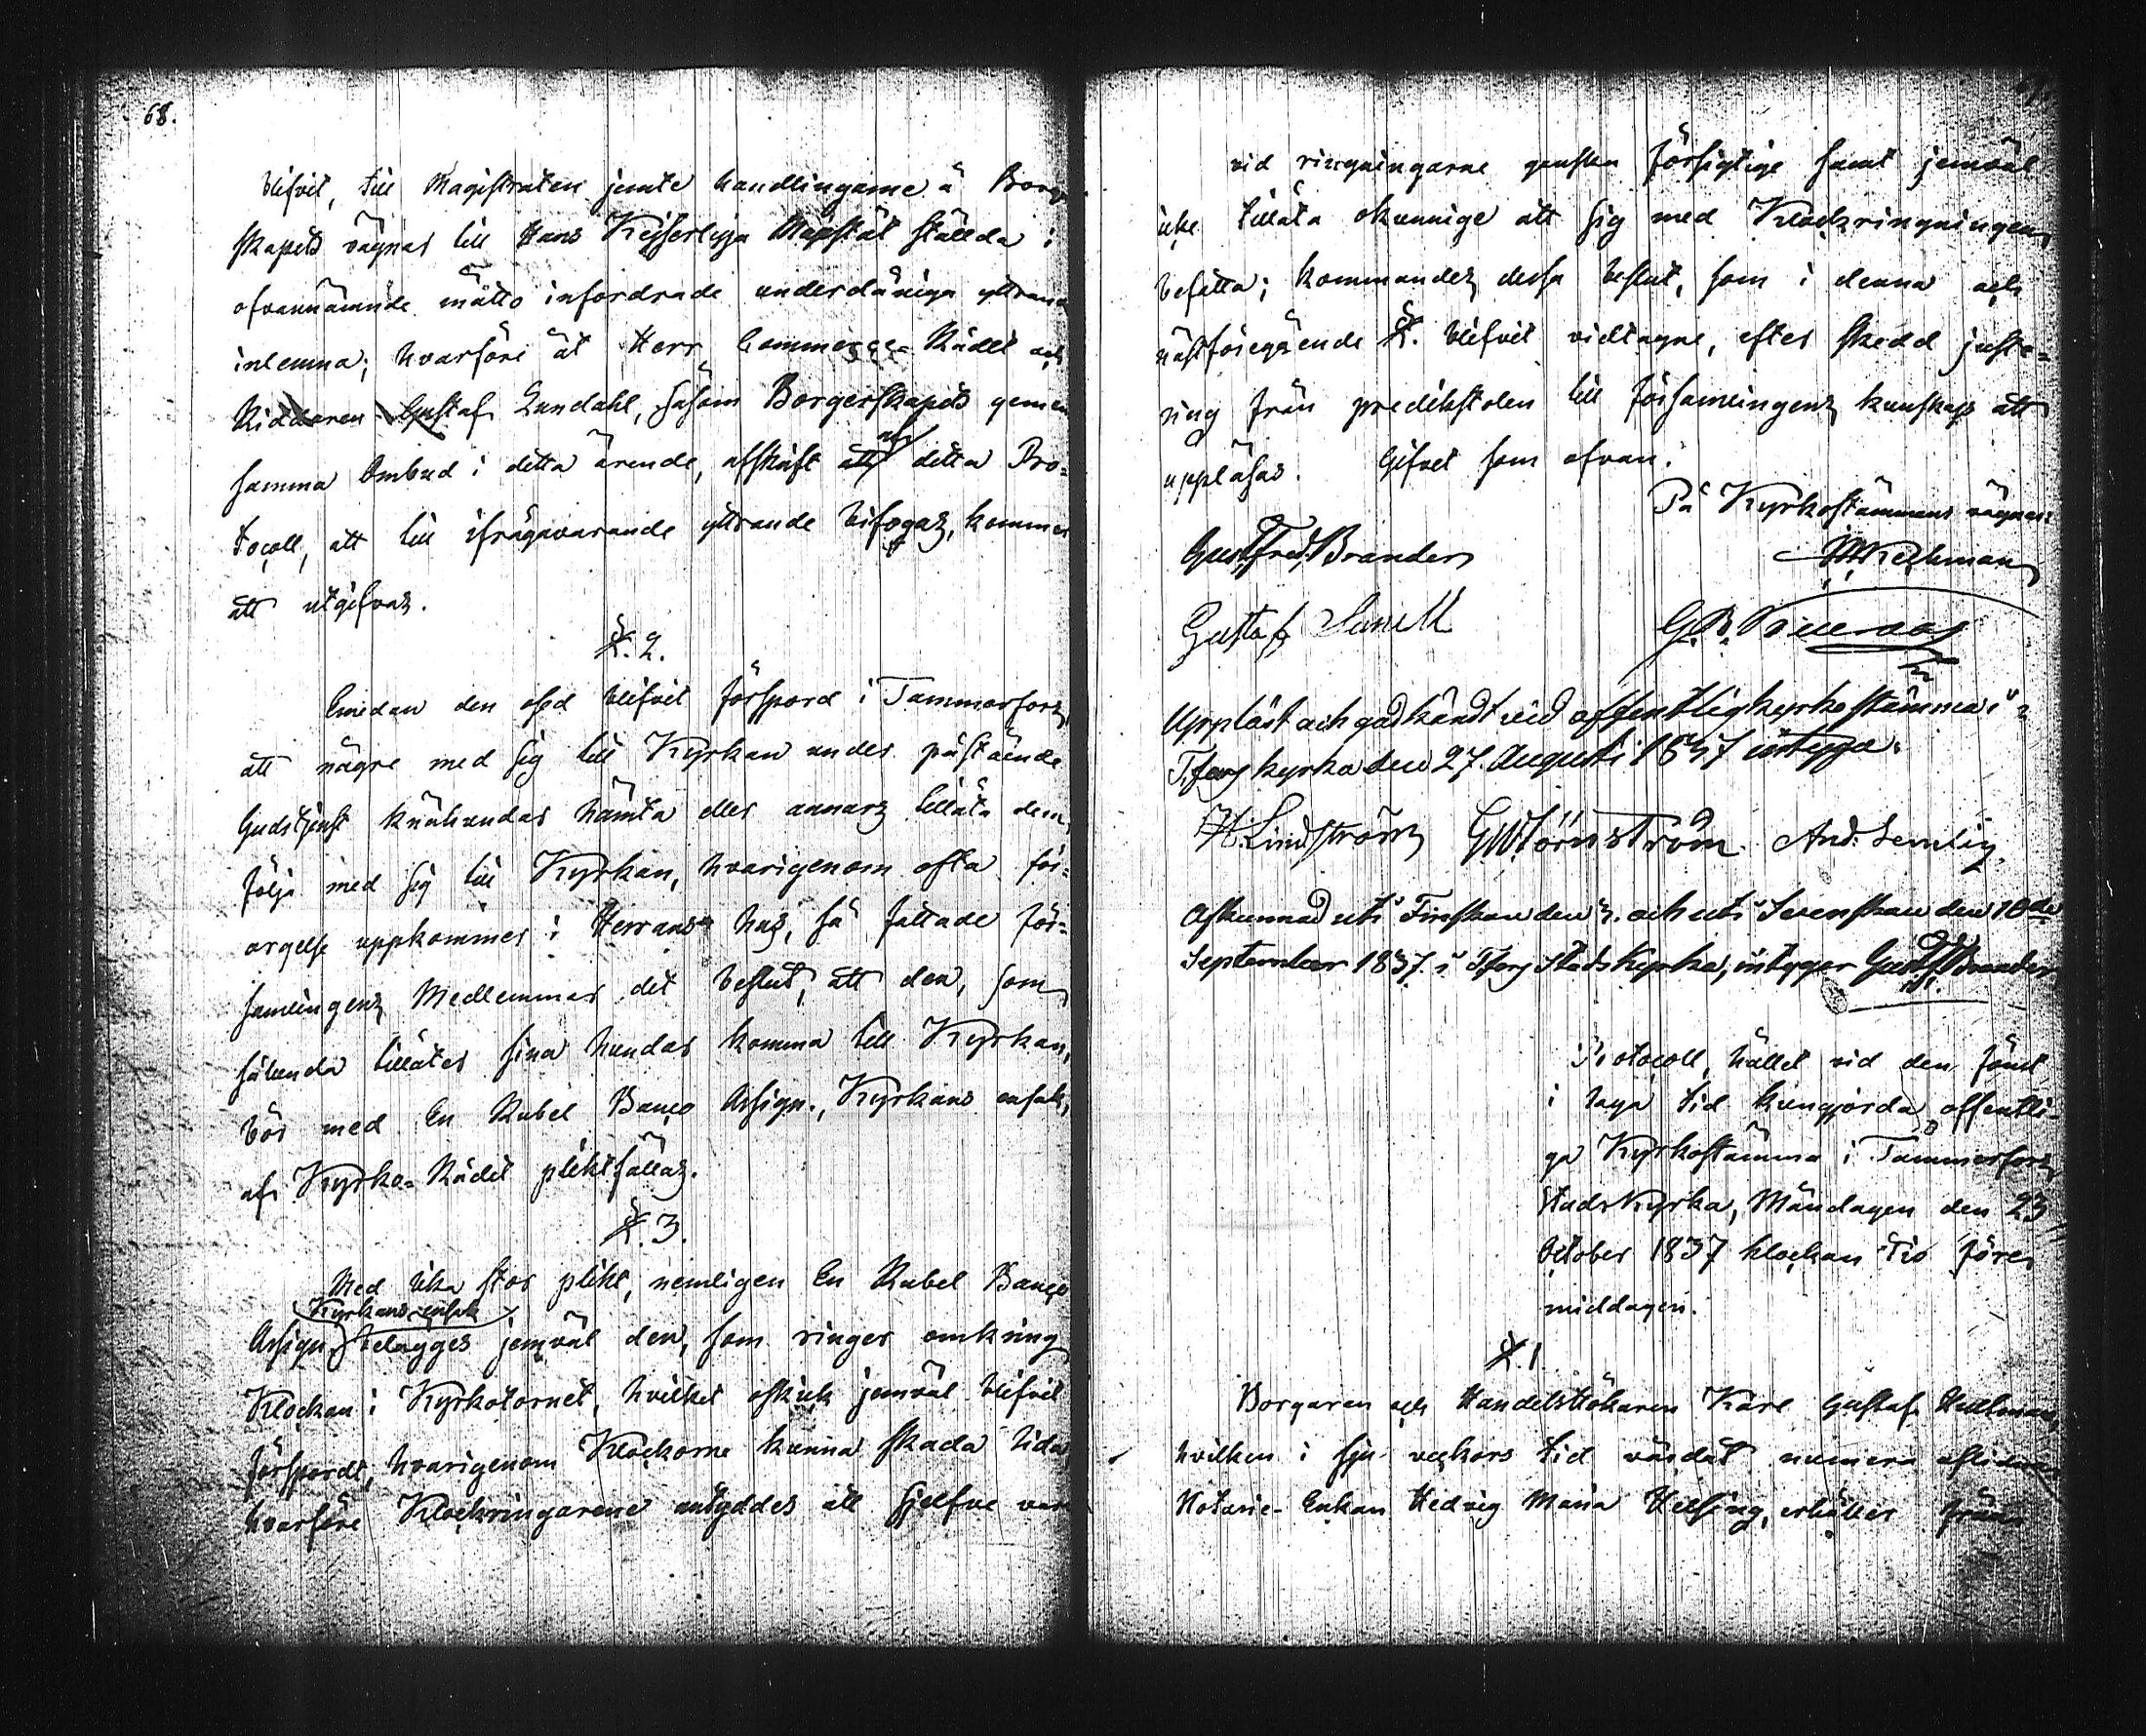 68.
blifvit, till Magistraten jemte handlingarne å Borg
skapets vägnar till Hans Kejserliga Majestät ställda i
ofvannämnde måtto infordrade underdåniga yttrande
inlemna; hvarföre åt Herr Commerce-Rådet och
Riddaren Gustaf Lundahl, såsom Borgerskapets gemen
samma Ombud i detta ärende, afskrift af detta Pro-
tocoll, att till ifrågavarande yttrande bifogas, kommer
att utgifvas.
§. 2.
Emedan den osed blifvit förspord i Tammerfors,
att någre med sig till Kyrkan under påstående
Gudstjenst knähundar hämta eller annars tillåta dem
följa med sig till Kyrkan, hvarigenom ofta för-
argelse uppkommer i Herrans hus, så fattade För-
samlingens Medlemmar det beslut, att den, som
sålunda tillåter sina hundar komma till Kyrkan,
bör med En Rubel Banco Assign., Kyrkans ensak,
af Kyrko-Rådet pliktfällas.
§. 3.
Med lika stor plikt, nemligen En Rubel Banco
Kyrkans ensak
Assign. belägges jemväl den, som ringer omkring
Klockan i Kyrkotornet, hvilket oskick jemväl blifvit
försportdt, hvarigenom Klockorne kunna skada lida,
hvarföre Klockringarene antyddes att sjelfve vara
vid ringningarne ganska försigtige samt jemväl
icke tillåta okunnige att sig med Klockringningen
befatta; kommandes dessa beslut, som i denna och
nästföregående §. blifvit vidtagne, efter skedd juste-
ring från predikstolen till församlingens kunskap att
uppläsas. Gifvet som ofvan.
På Kyrkostämmans vägnar:
Gust. Fred. Brander
Gustaf
Uppläst och godkändt vid offentlig kyrkostämma i
T.fors kyrka den 27. Augusti 1837 intyga.
Lindström G.W. Törnström And.
Afkunnad uti Finskan den 3. och uti Svenskan den 10de
September 1837. i T.fors Stads Kyrka, intygar Gust. F. Brander
Protocoll, hållet vid den sämt
i laga tid kungjorda offentli-
ga Kyrkostämma i Tammerfors
Stads Kyrka, Måndagen den 23
October 1837 klockan Tio före
middagen.
§. 1.
Borgaren och Handelshökaren Karl Gustaf
hvilken i sju veckors tid vårdat numera aflidna
Notarie-Enkan Hedvig Maria Helsing, erhåller från